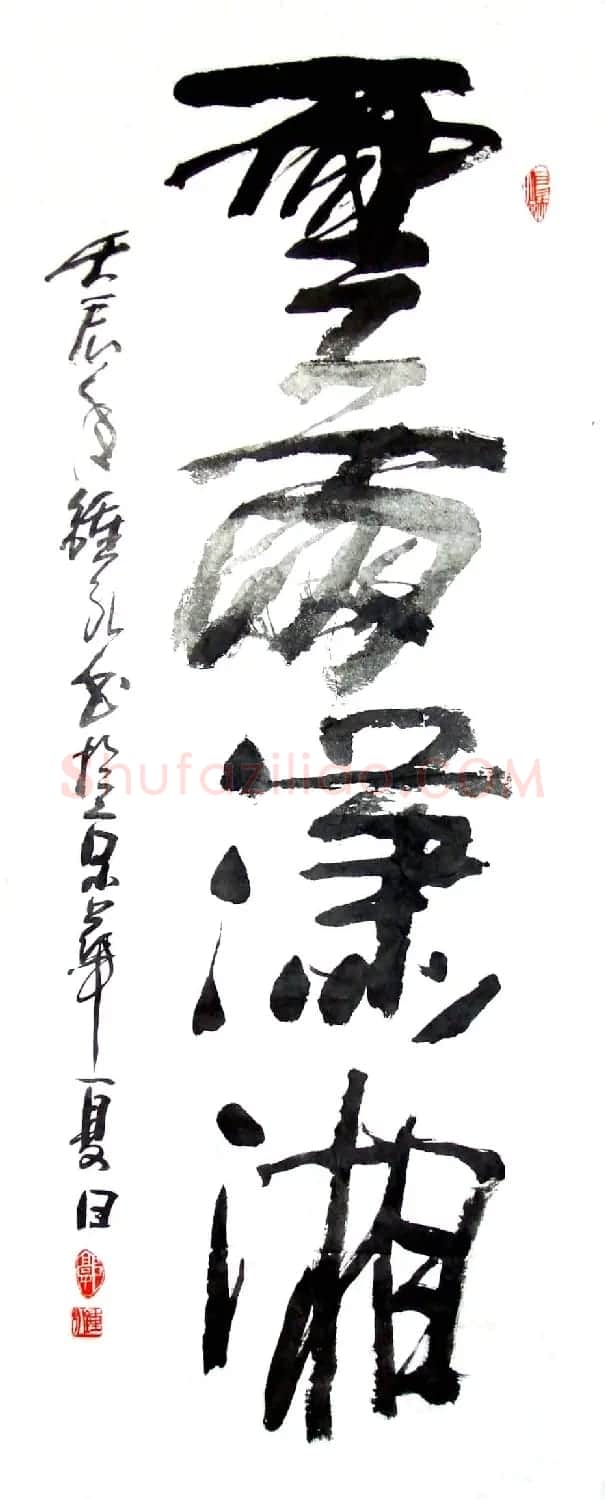 雲雨瀟湘
壬辰年鍾永書於京華夏日
Shufaziliao.COM